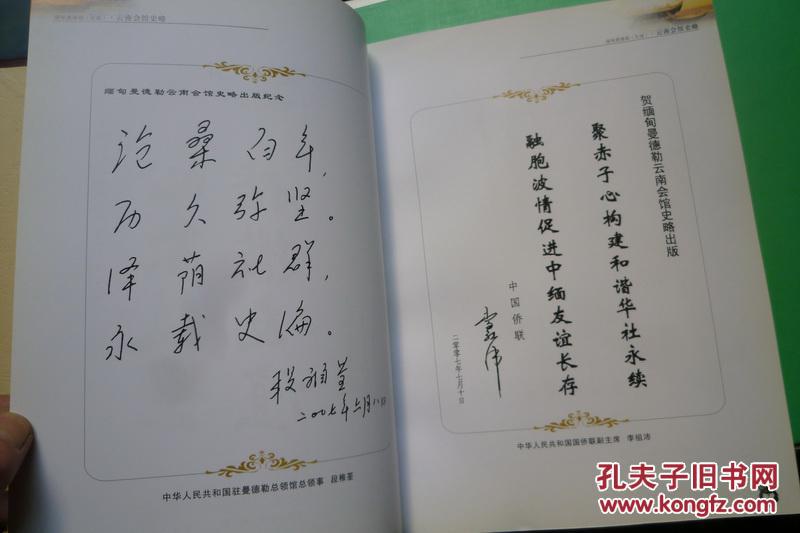 云南会馆史略
缅甸曼德勒云南会馆史略出版纪念
沧桑百年，
历久弥坚。
泽荫社群，
永载史编。
段稚荃
二〇〇七年六月八日
中华人民共和国驻曼德勒总领馆总领事 段稚荃
云南会馆史略
贺缅甸曼德勒云南会馆史略出版
聚赤子心构建和谐华社永续
融胞波情促进中缅友谊长存
中国侨联
二零零七年七月十日
中华人民共和国国侨联副主席 李祖沛
孔夫子旧书网
kongfz.com